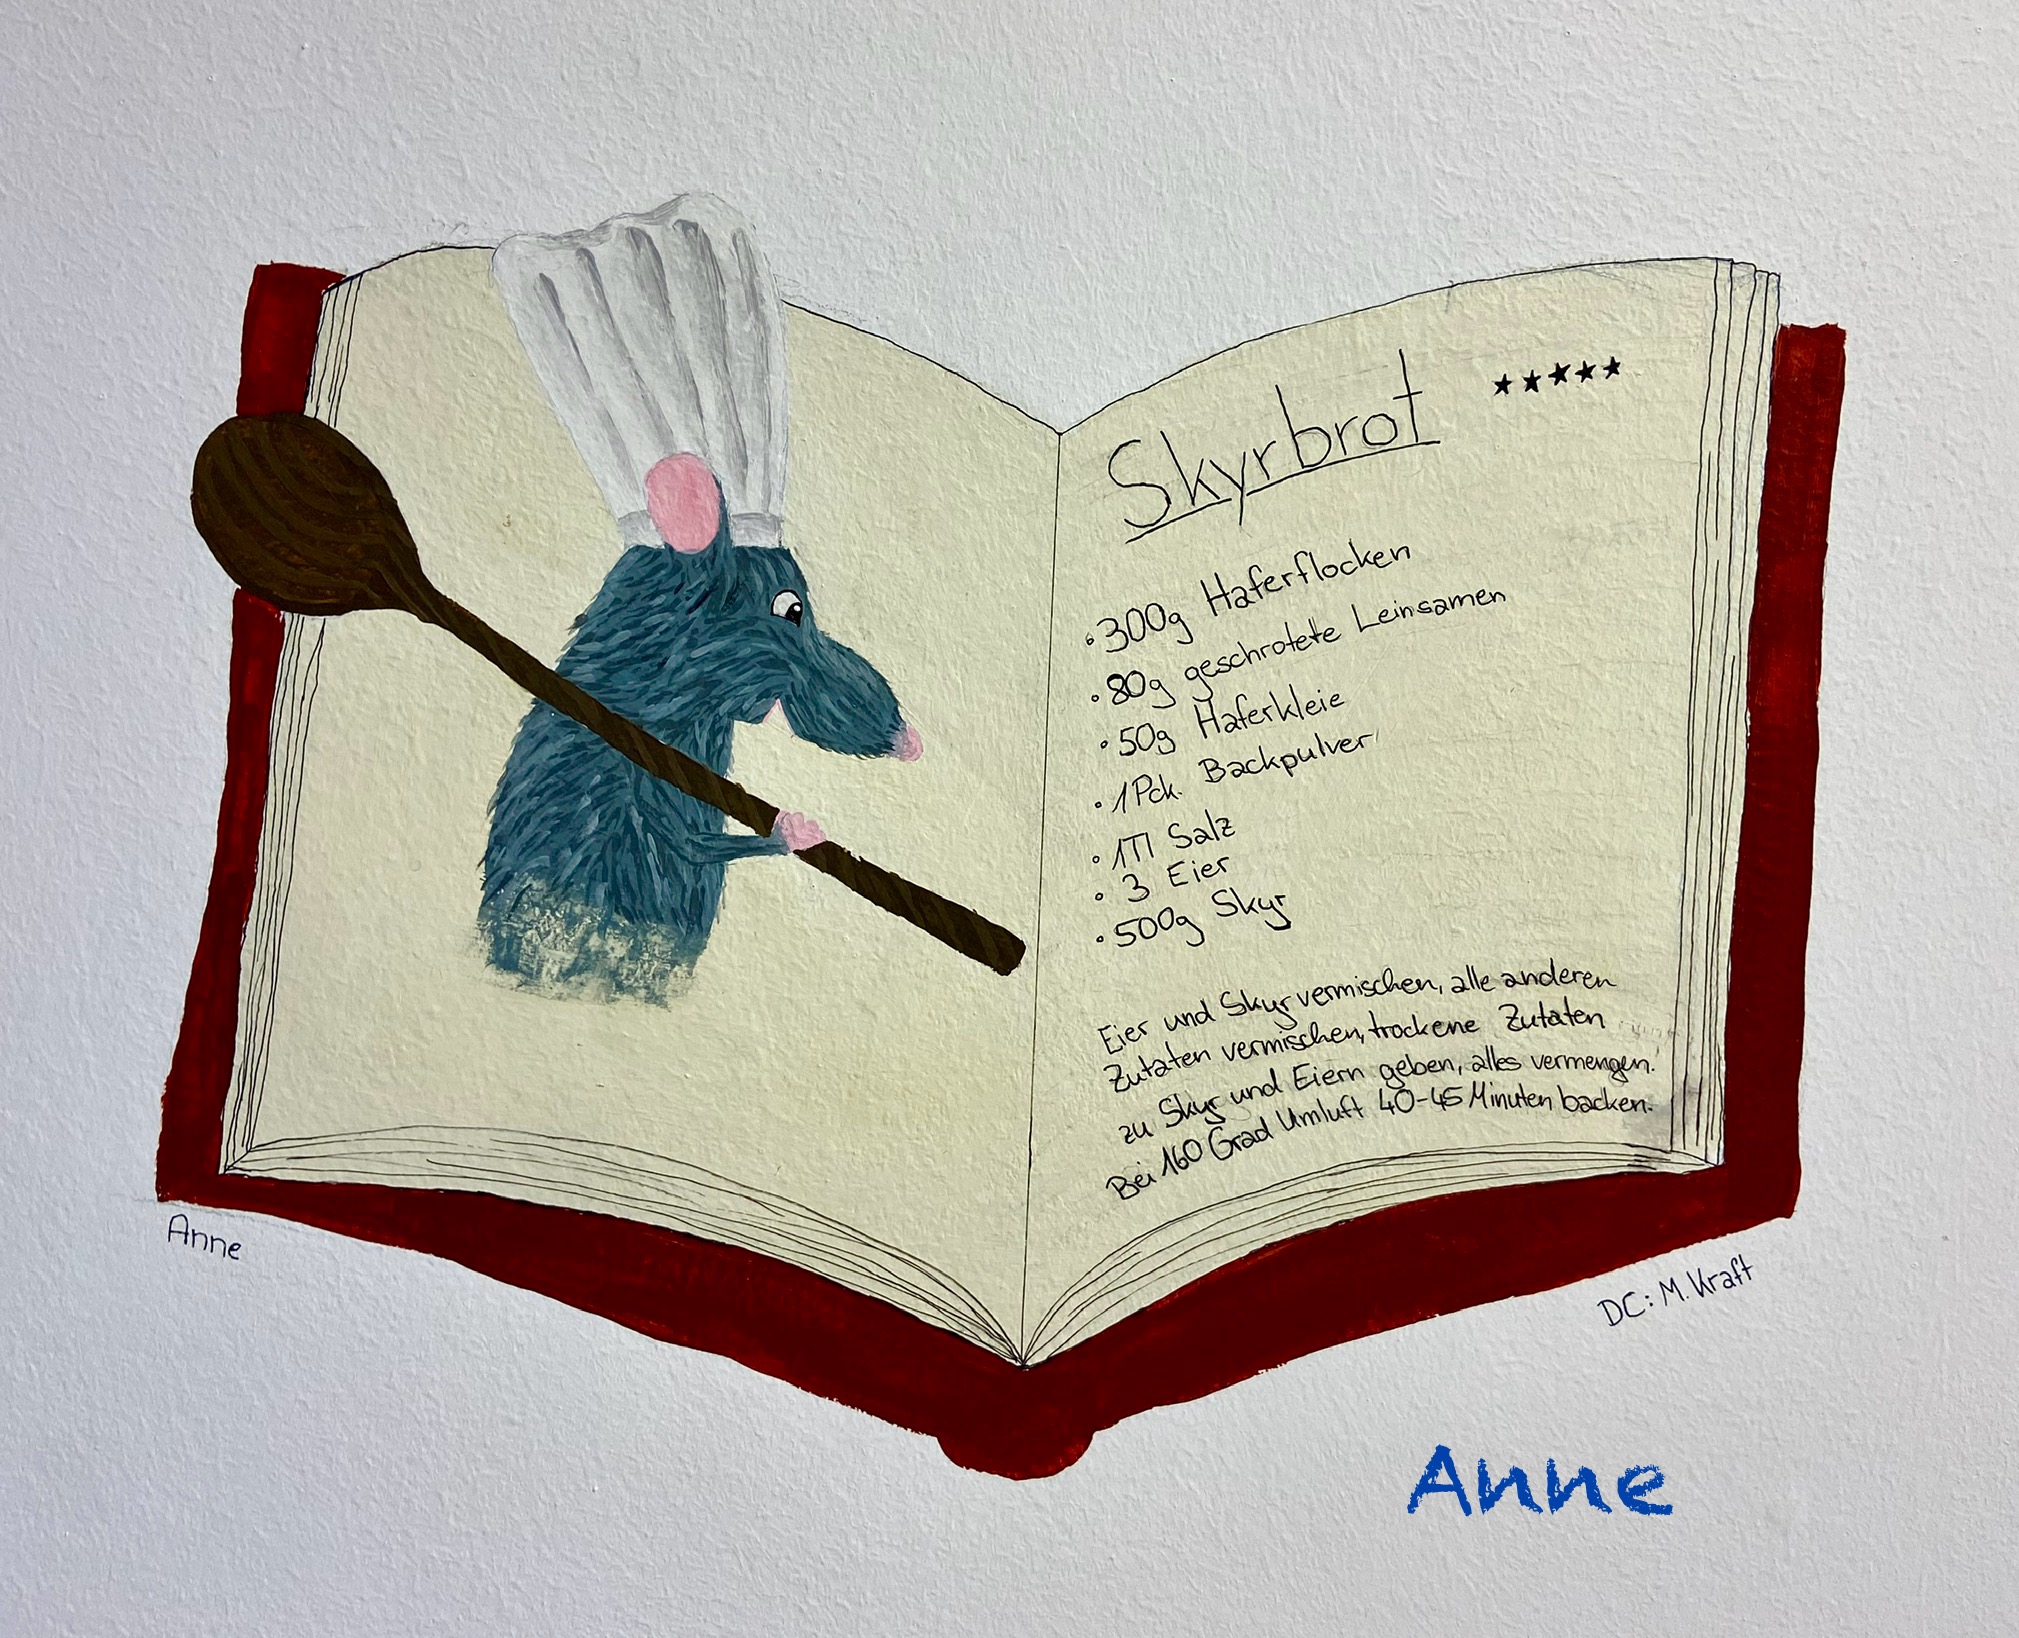 Skyrbrot ★★★★★
• 300g Haferflocken
• 80g geschrotete Leinsamen
• 50g Haferkleie
• 1 Pck. Backpulver
• 1Tl Salz
• 3 Eier
• 500g Skyr
Eier und Skyr vermischen, alle anderen
Zutaten vermischen, trockene Zutaten
zu Skyr und Eiern geben, alles vermengen.
Bei 160 Grad Umluft 40-45 Minuten backen.
Anne
DC: M. Kraft
Anne